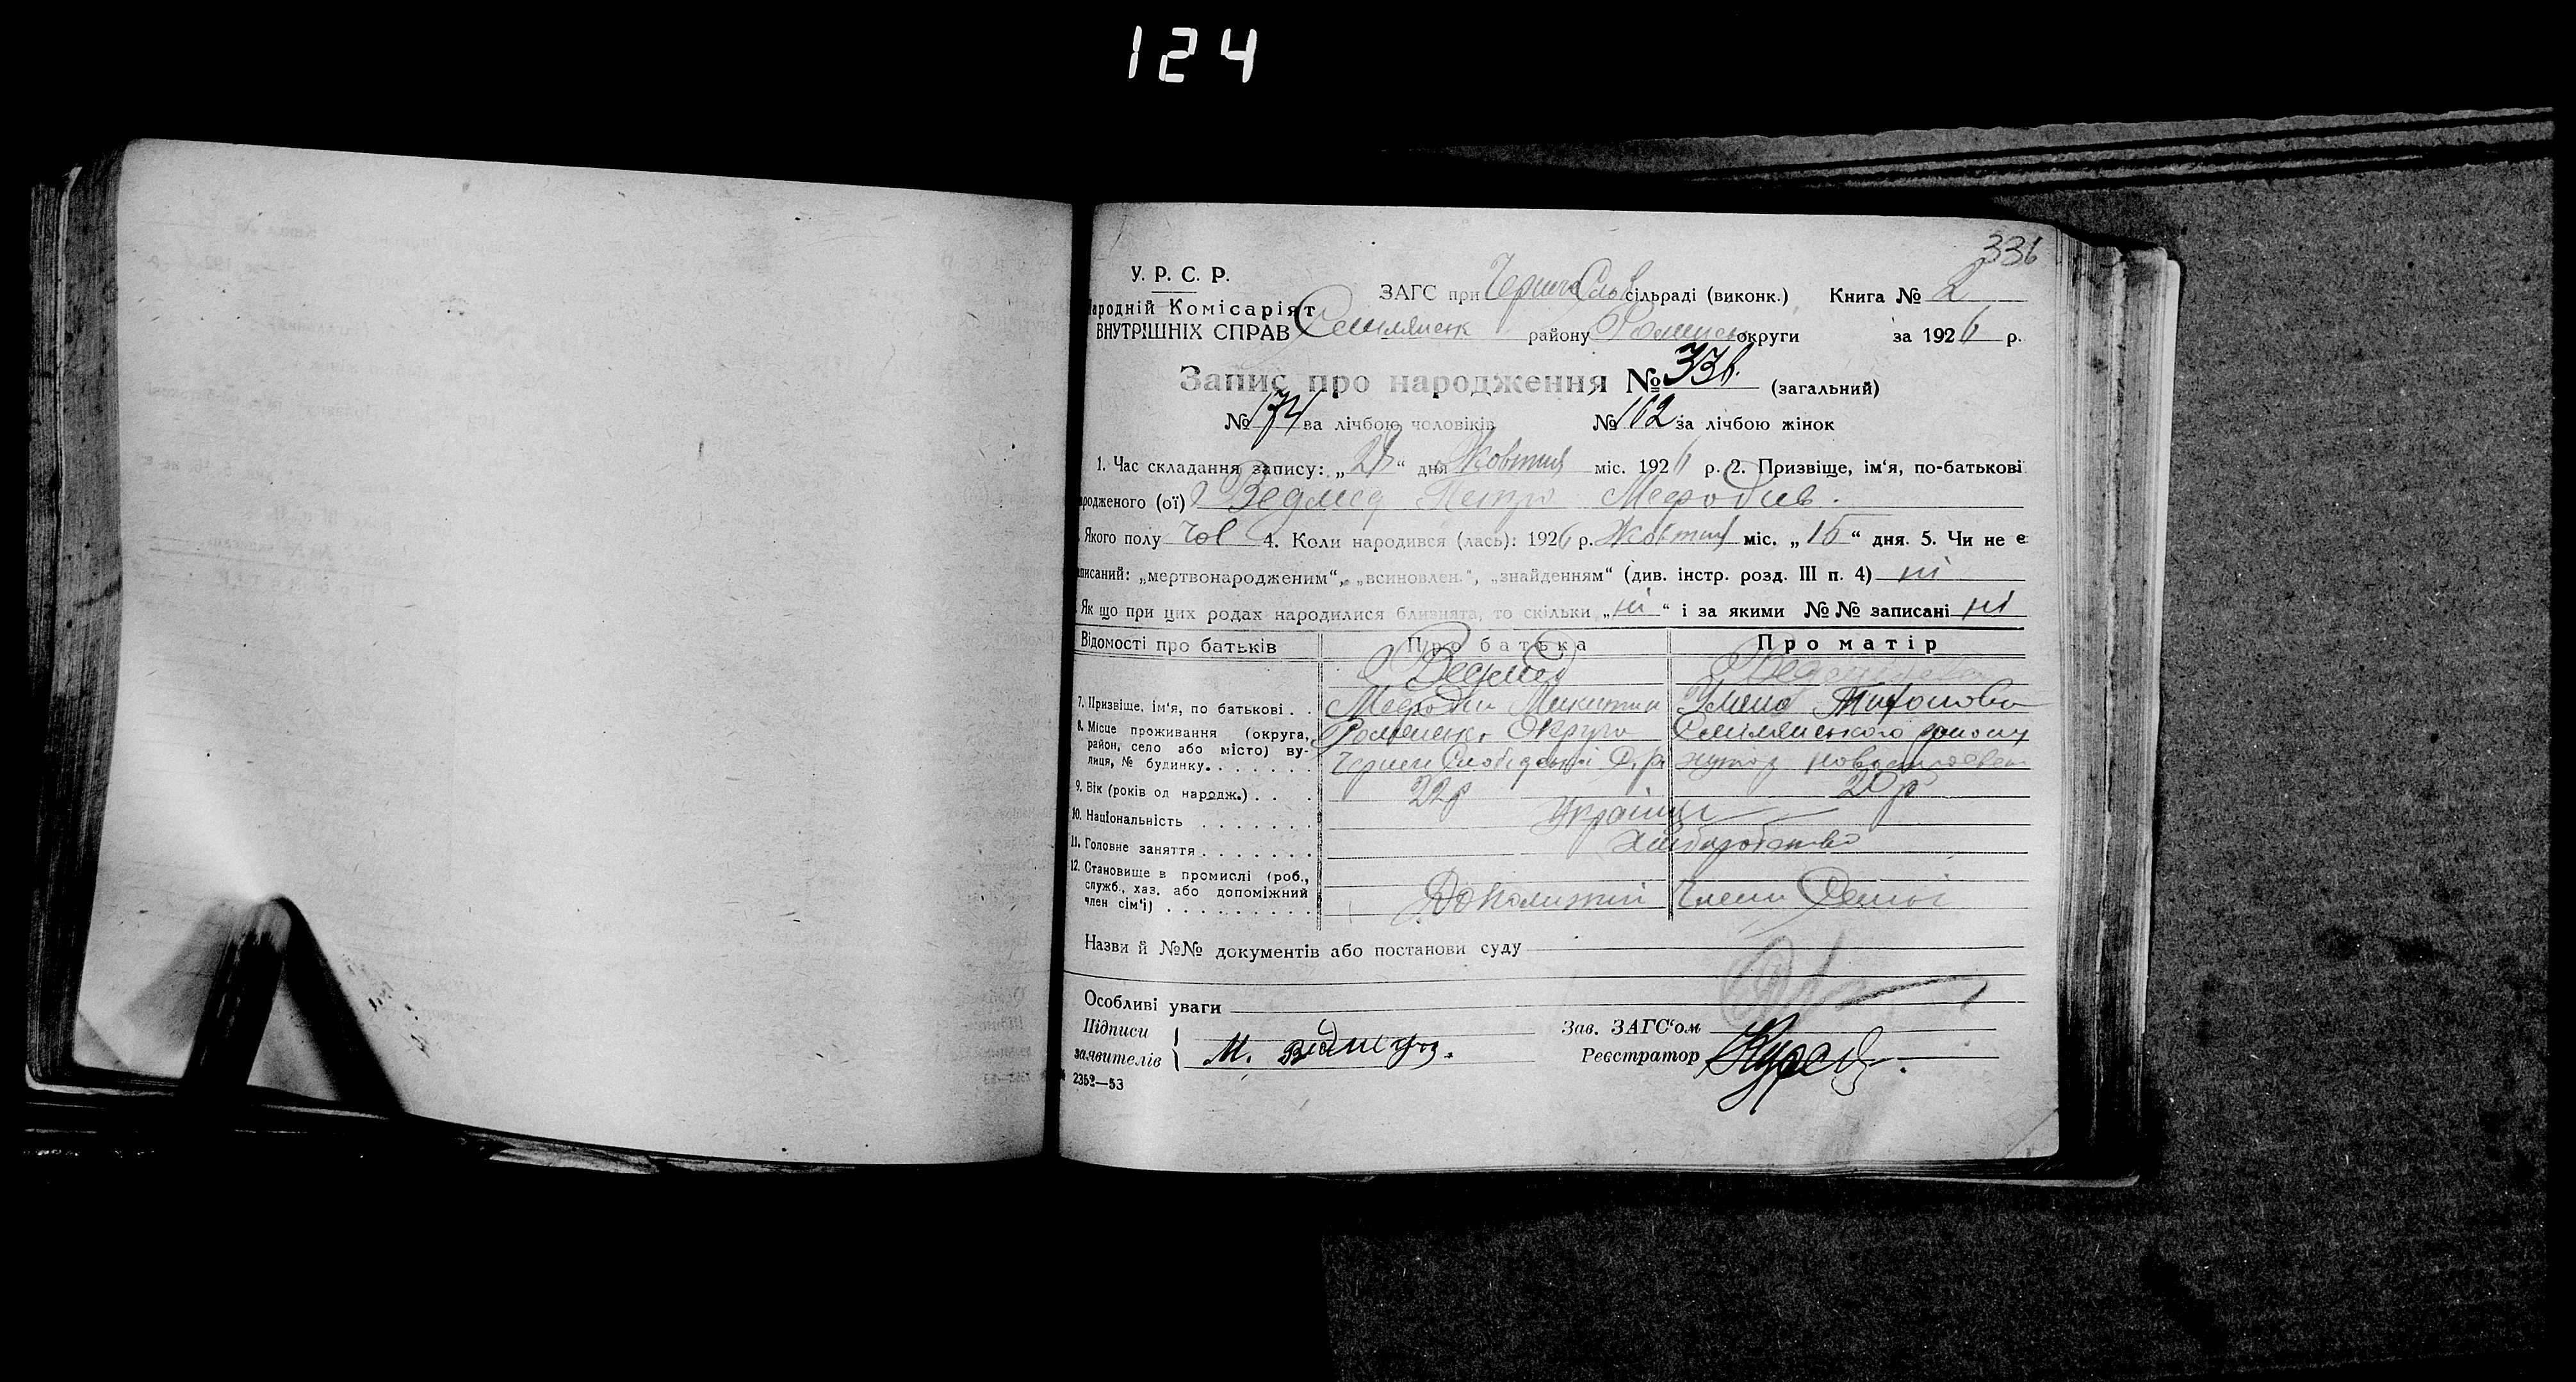 124
336
У. Р. С. Р.
Народній Комісаріят
ВНУТРІШНІХ СПРАВ
ЗАГС при сільраді (виконк.) Книга № 2
району округи за 1926 р.
Запис про народження № 336. (загальний)
№ 174 за лічбою чоловіків № 162 за лічбою жінок
1. Час складання запису: „ “ дня Жовтня міс. 1926 р. 2. Призвіще, ім‘я, по-батькові
родженого (ої) Ведмед Петро Мефодів.
Якого полу чол 4. Коли народився (лась): 1926 р. Жовтня міс. „15“ дня. 5. Чи не є
писаний: „мертвонародженим“, „всиновлен.“, „знайденням“ (див. інстр. розд. III п. 4) ні
Як що при цих родах народилися близнята, то скільки „ні“ і за якими №№ записані ні
Відомості про батьків Про батька Про матір
Ведмед
7. Призвіще, ім‘я, по батькові . . Мефодій Микитин
8. Місце проживання (округа, район, село або місто) вулиця, № будинку. Роменськ. Округа Смілянського району
хутор
9. Вік (років од народж.) . . . 22 р 20 р
10. Національність . . . . . . . Українці
11. Головне заняття . . . . . . . Хліборобство
12. Становище в промислі (роб., служб., хаз. або допоміжний член сім‘і) . . . . . . . . . Допоміжний Члени Сем'ї
Назви й №№ документів або постанови суду
Особливі уваги
Підписи
заявителів М.
Зав. ЗАГС‘ом
Реєстратор
2352—53